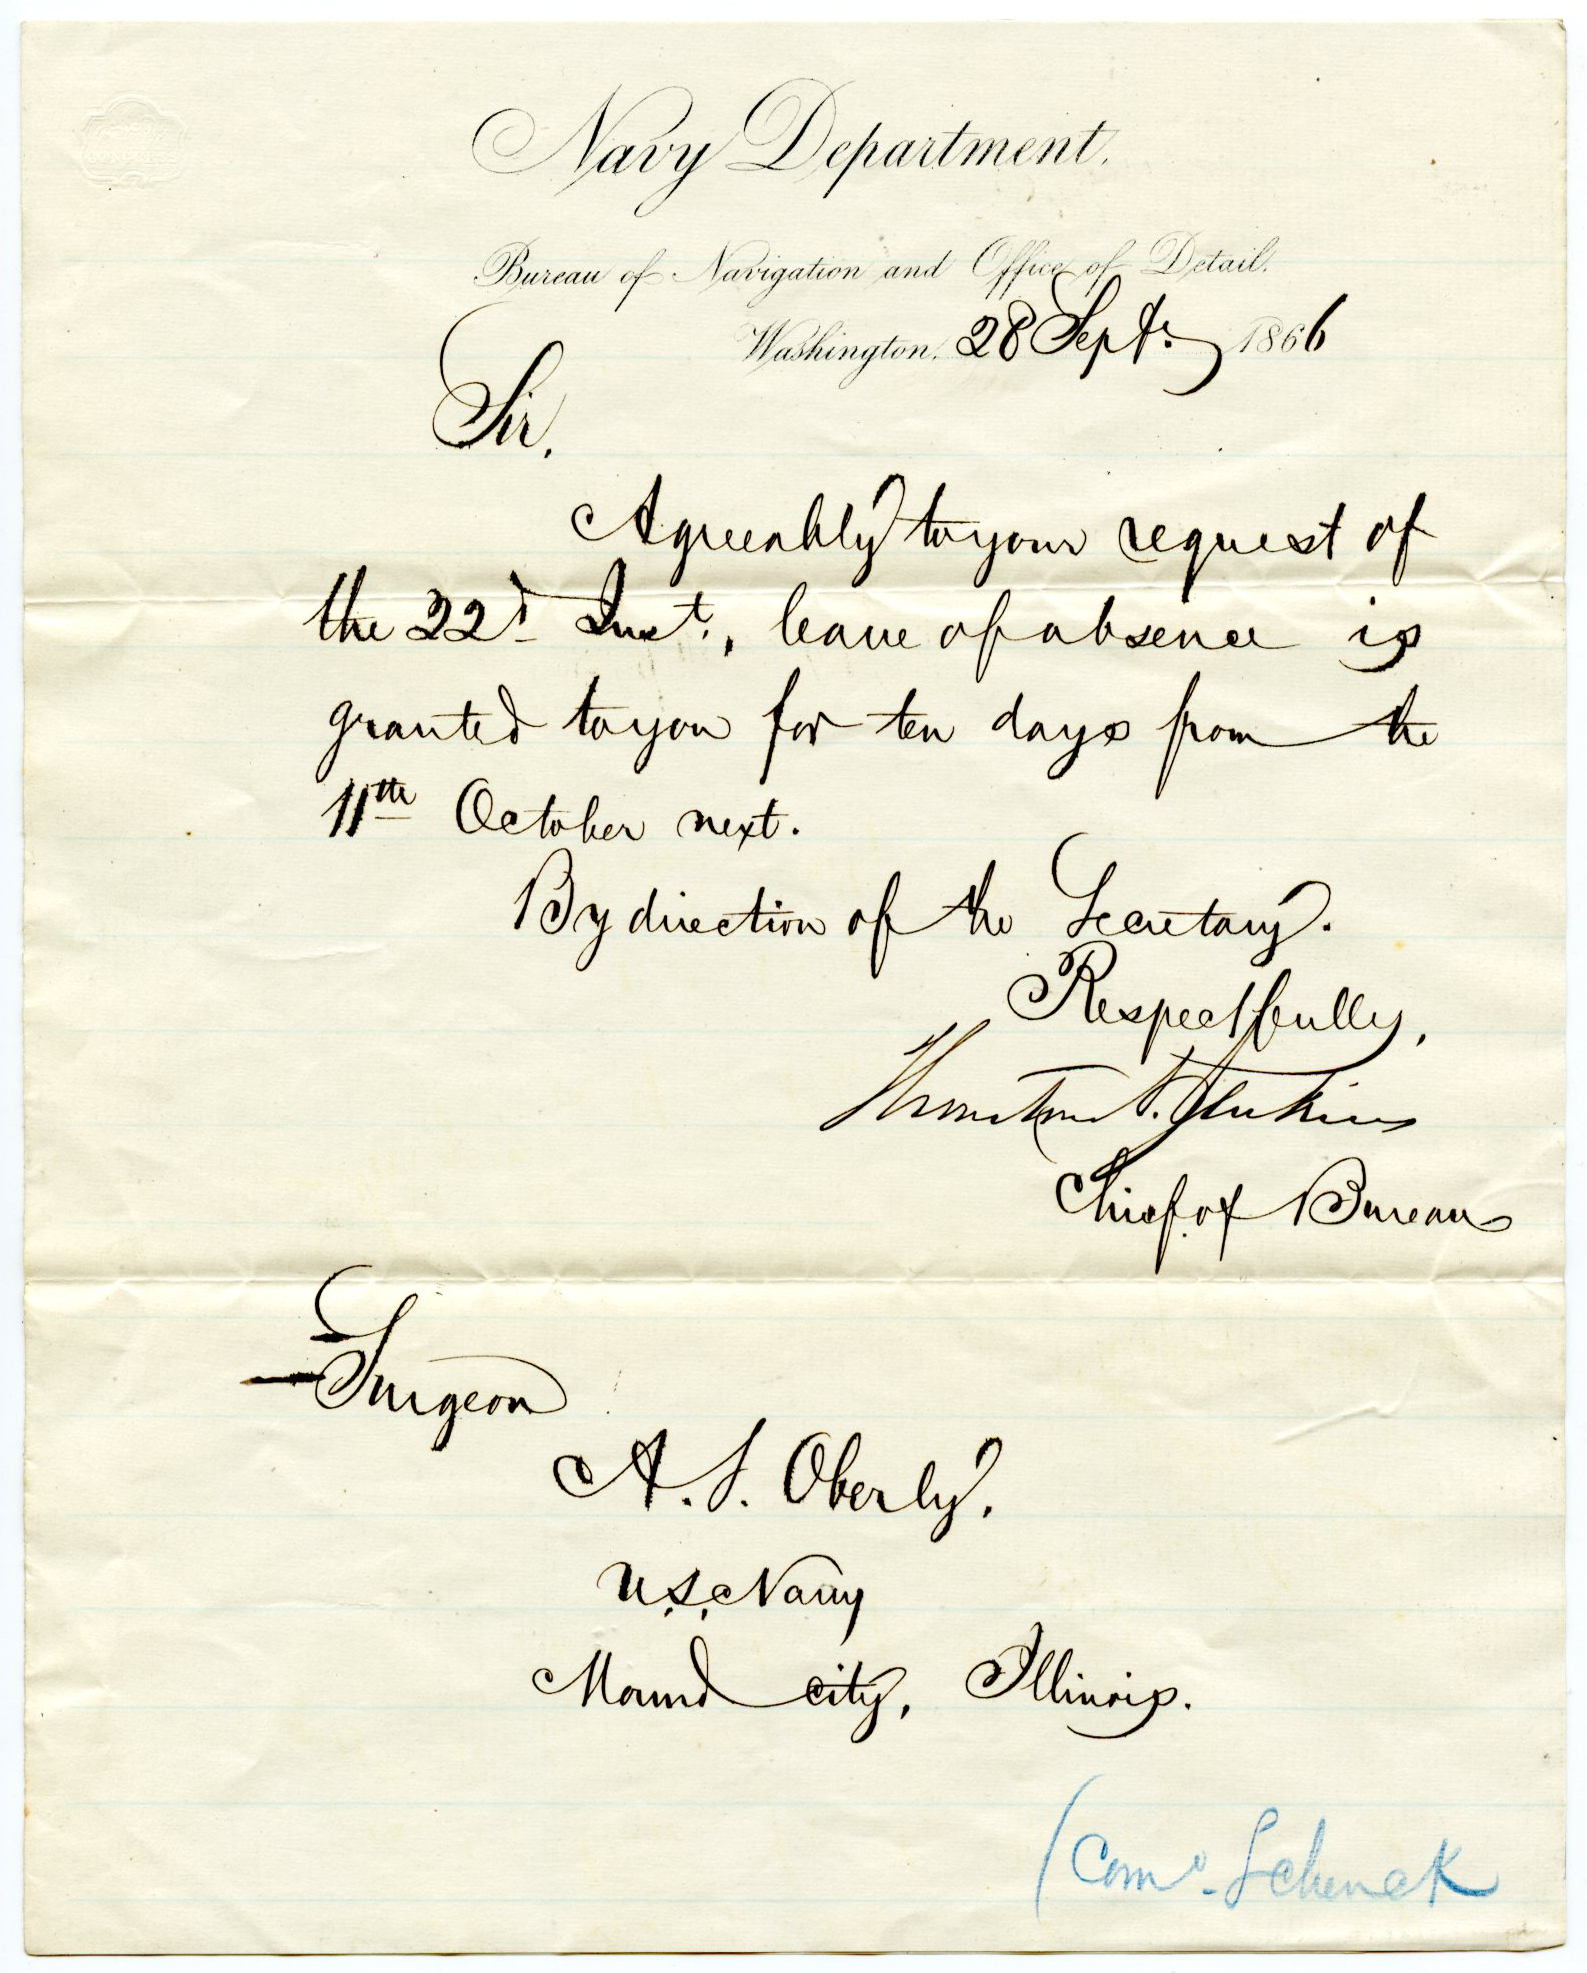 Navy Department.
Bureau of Navigation and Office of Detail.
Washington, 28 Sept. 1866
Sir,
Agreeably to your request of
the 22d Inst., leave of absence is
granted to you for ten days from the
11th October next.
By direction of the Secretary.
Respectfully,
Thornton A. Jenkins
Chief of Bureau
Surgeon
A. S. Oberly,
U.S. Navy
Mound city, Illinois.
(Como. Schenck